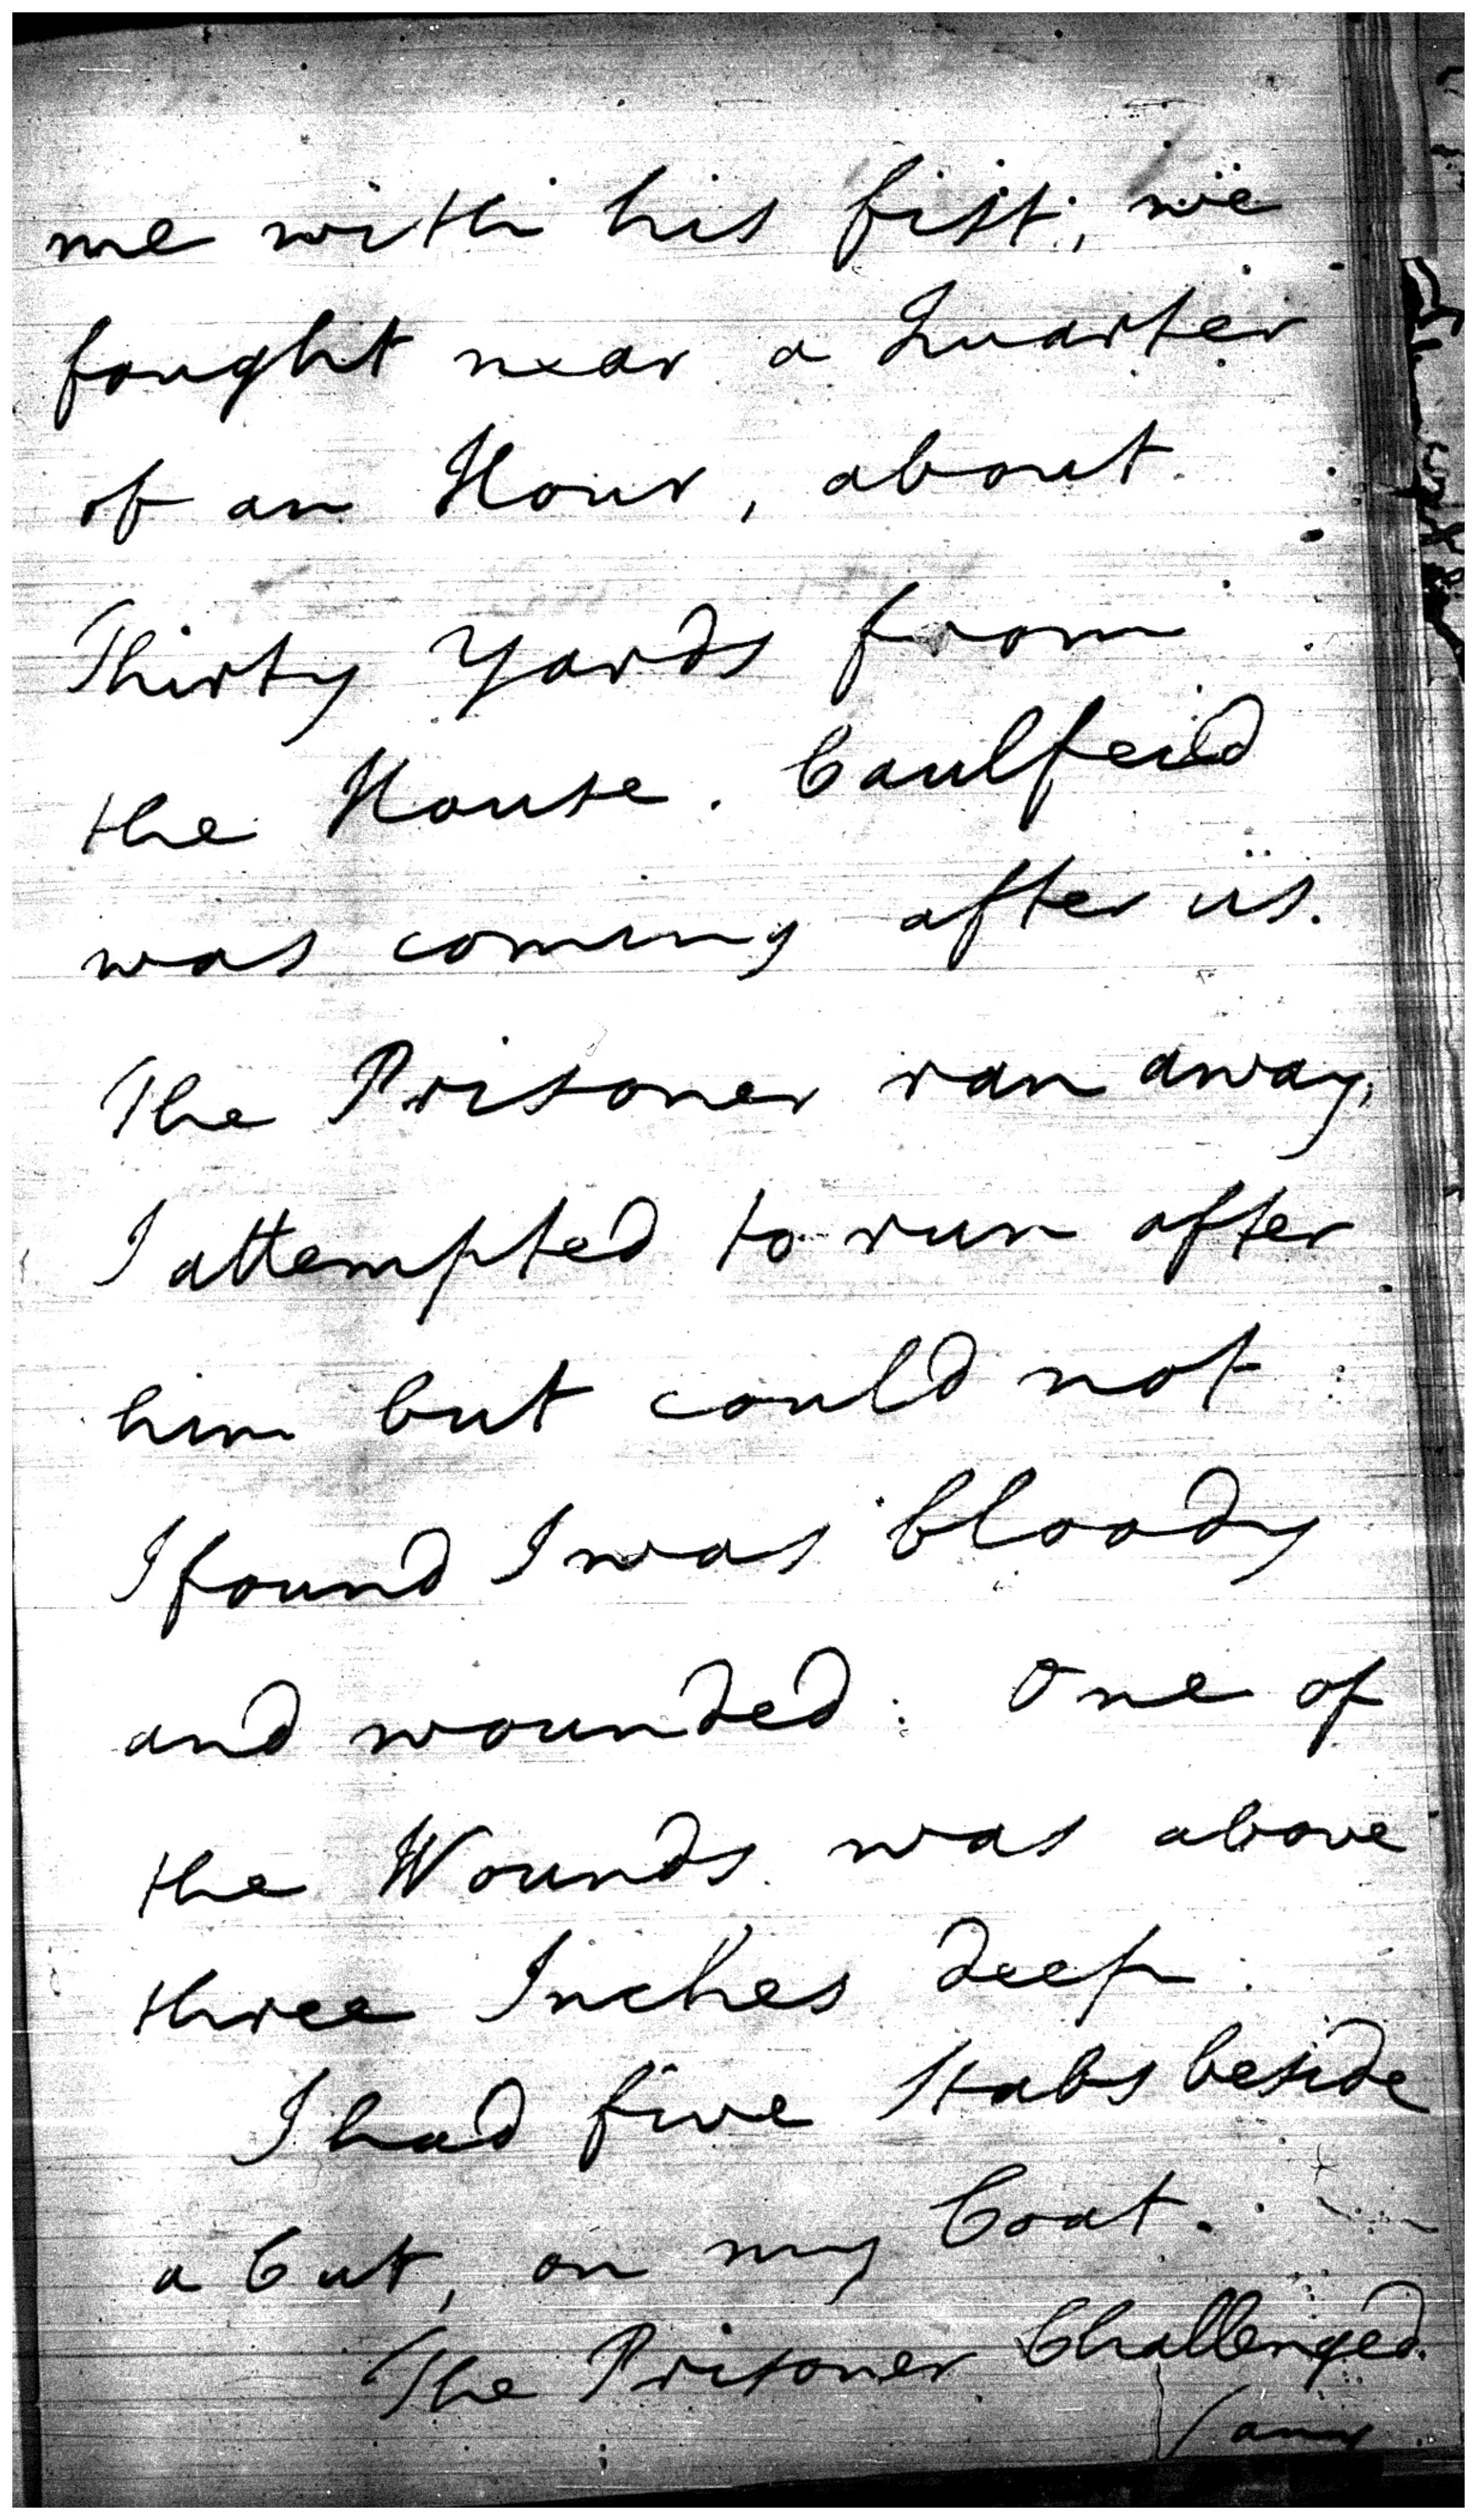 me with his fist; we
fought near a Quarter
of an Hour, about
Thirty Yards from
the House. Caulfeild
was coming after us.
The Prisoner ran away,
I attempted to run after
him but could not
I found I was bloody
and wounded: One of
the Wounds was above
three Inches deep.
I had five Stabs beside
a Cut, on my Coat.
The Prisoner Challenged.